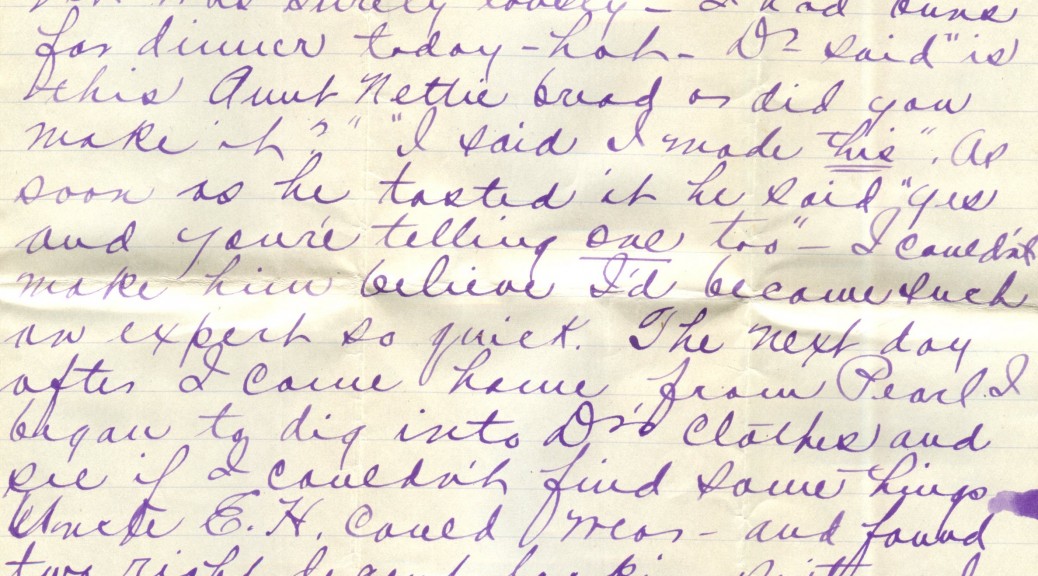 was surely lovely - I had buns
for dinner today - hot - Dr said "is
this Aunt Nettie bread or did you
make it?" "I said I made this". As
soon as he tasted it he said "yes
and you're telling one too" - I couldn't
make him believe I'd became such
an expert so quick. The next day
after I came home from Pearl I
began to dig into Dr's clothes and
see if I couldn't find some things
Uncle E. H. could wear - and found
two right decent looking